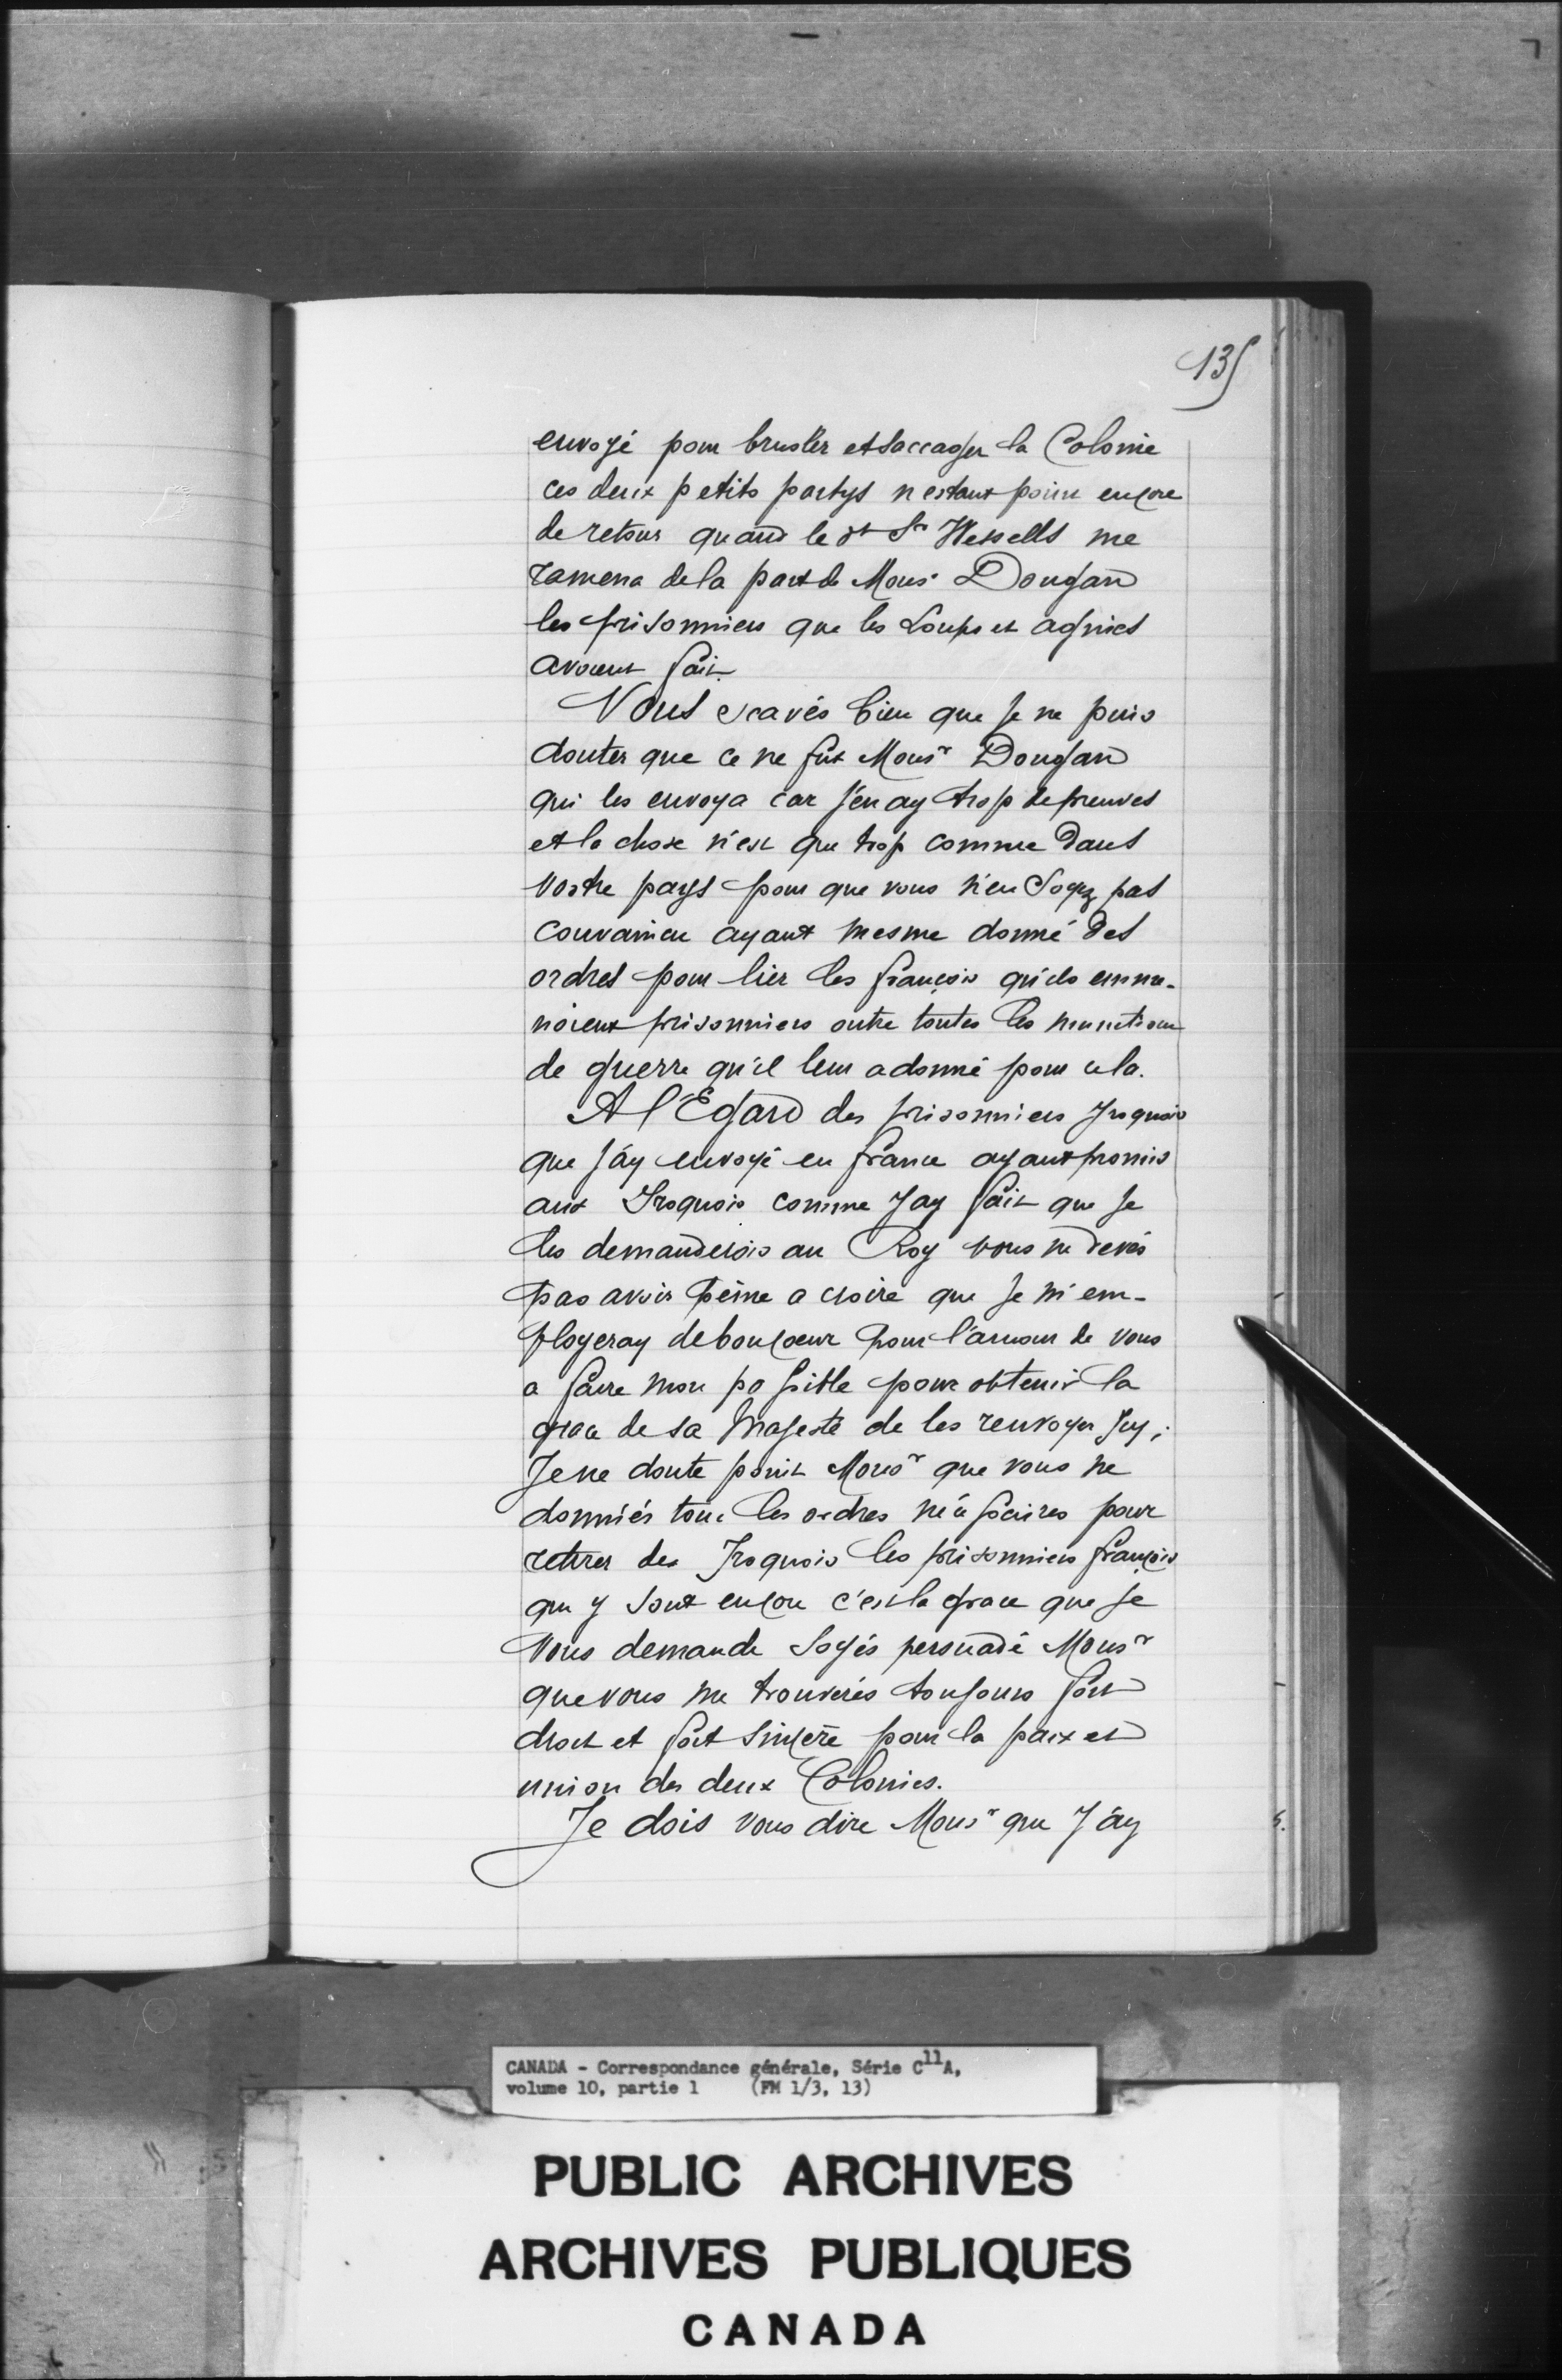 135
envoyé pour brusler et saccager la Colonie
ces deux petits partys nestant point encore
de retour quand le dt Sr Wessells me
ramena de la part de Monsr Dongan
les prisonniers que les Loups et agniés
avoient fait.
Vous scavés bien que Je ne puis
douter que ce ne fut Monsr Dongan
qui les envoya car J'en ay trop de preuves
et la chose n'est que trop connue dans
vostre pays pour que vous n'en Soyez pas
convaincu ayant mesme donné des
ordres pour lier les françois qu'ils emme-
noient prisonniers outre toutes les munitions
de guerre qu'il leur a donné pour cela.
A l'Egard des prisonniers Iroquois
que J'ay envoyé en france ayant promis
aux Iroquois comme J'ay fait que Je
les demanderois au Roy vous ne devés
pas avoir peine a croire que Je m'em-
ployeray de bon coeur pour l'amour de vous
a faire mon possible pour obtenir la
grace de sa Majesté de les renvoyer Icy,
Je ne doute point Monsr que vous ne
donniés tous les ordres nécessaires pour
retirer des Iroquois les prisonniers françois
qui y sont encore c'est la grace que Je
vous demande Soyés persuadé Monsr
que vous me trouverés toujours fort
droit et fort sincere pour la paix et
union des deux Colonies.
Je dois vous dire Monsr que J'ay
CANADA - Correspondance générale, Série C11A,
volume 10, partie 1 (FM 1/3, 13)
PUBLIC ARCHIVES
ARCHIVES PUBLIQUES
CANADA